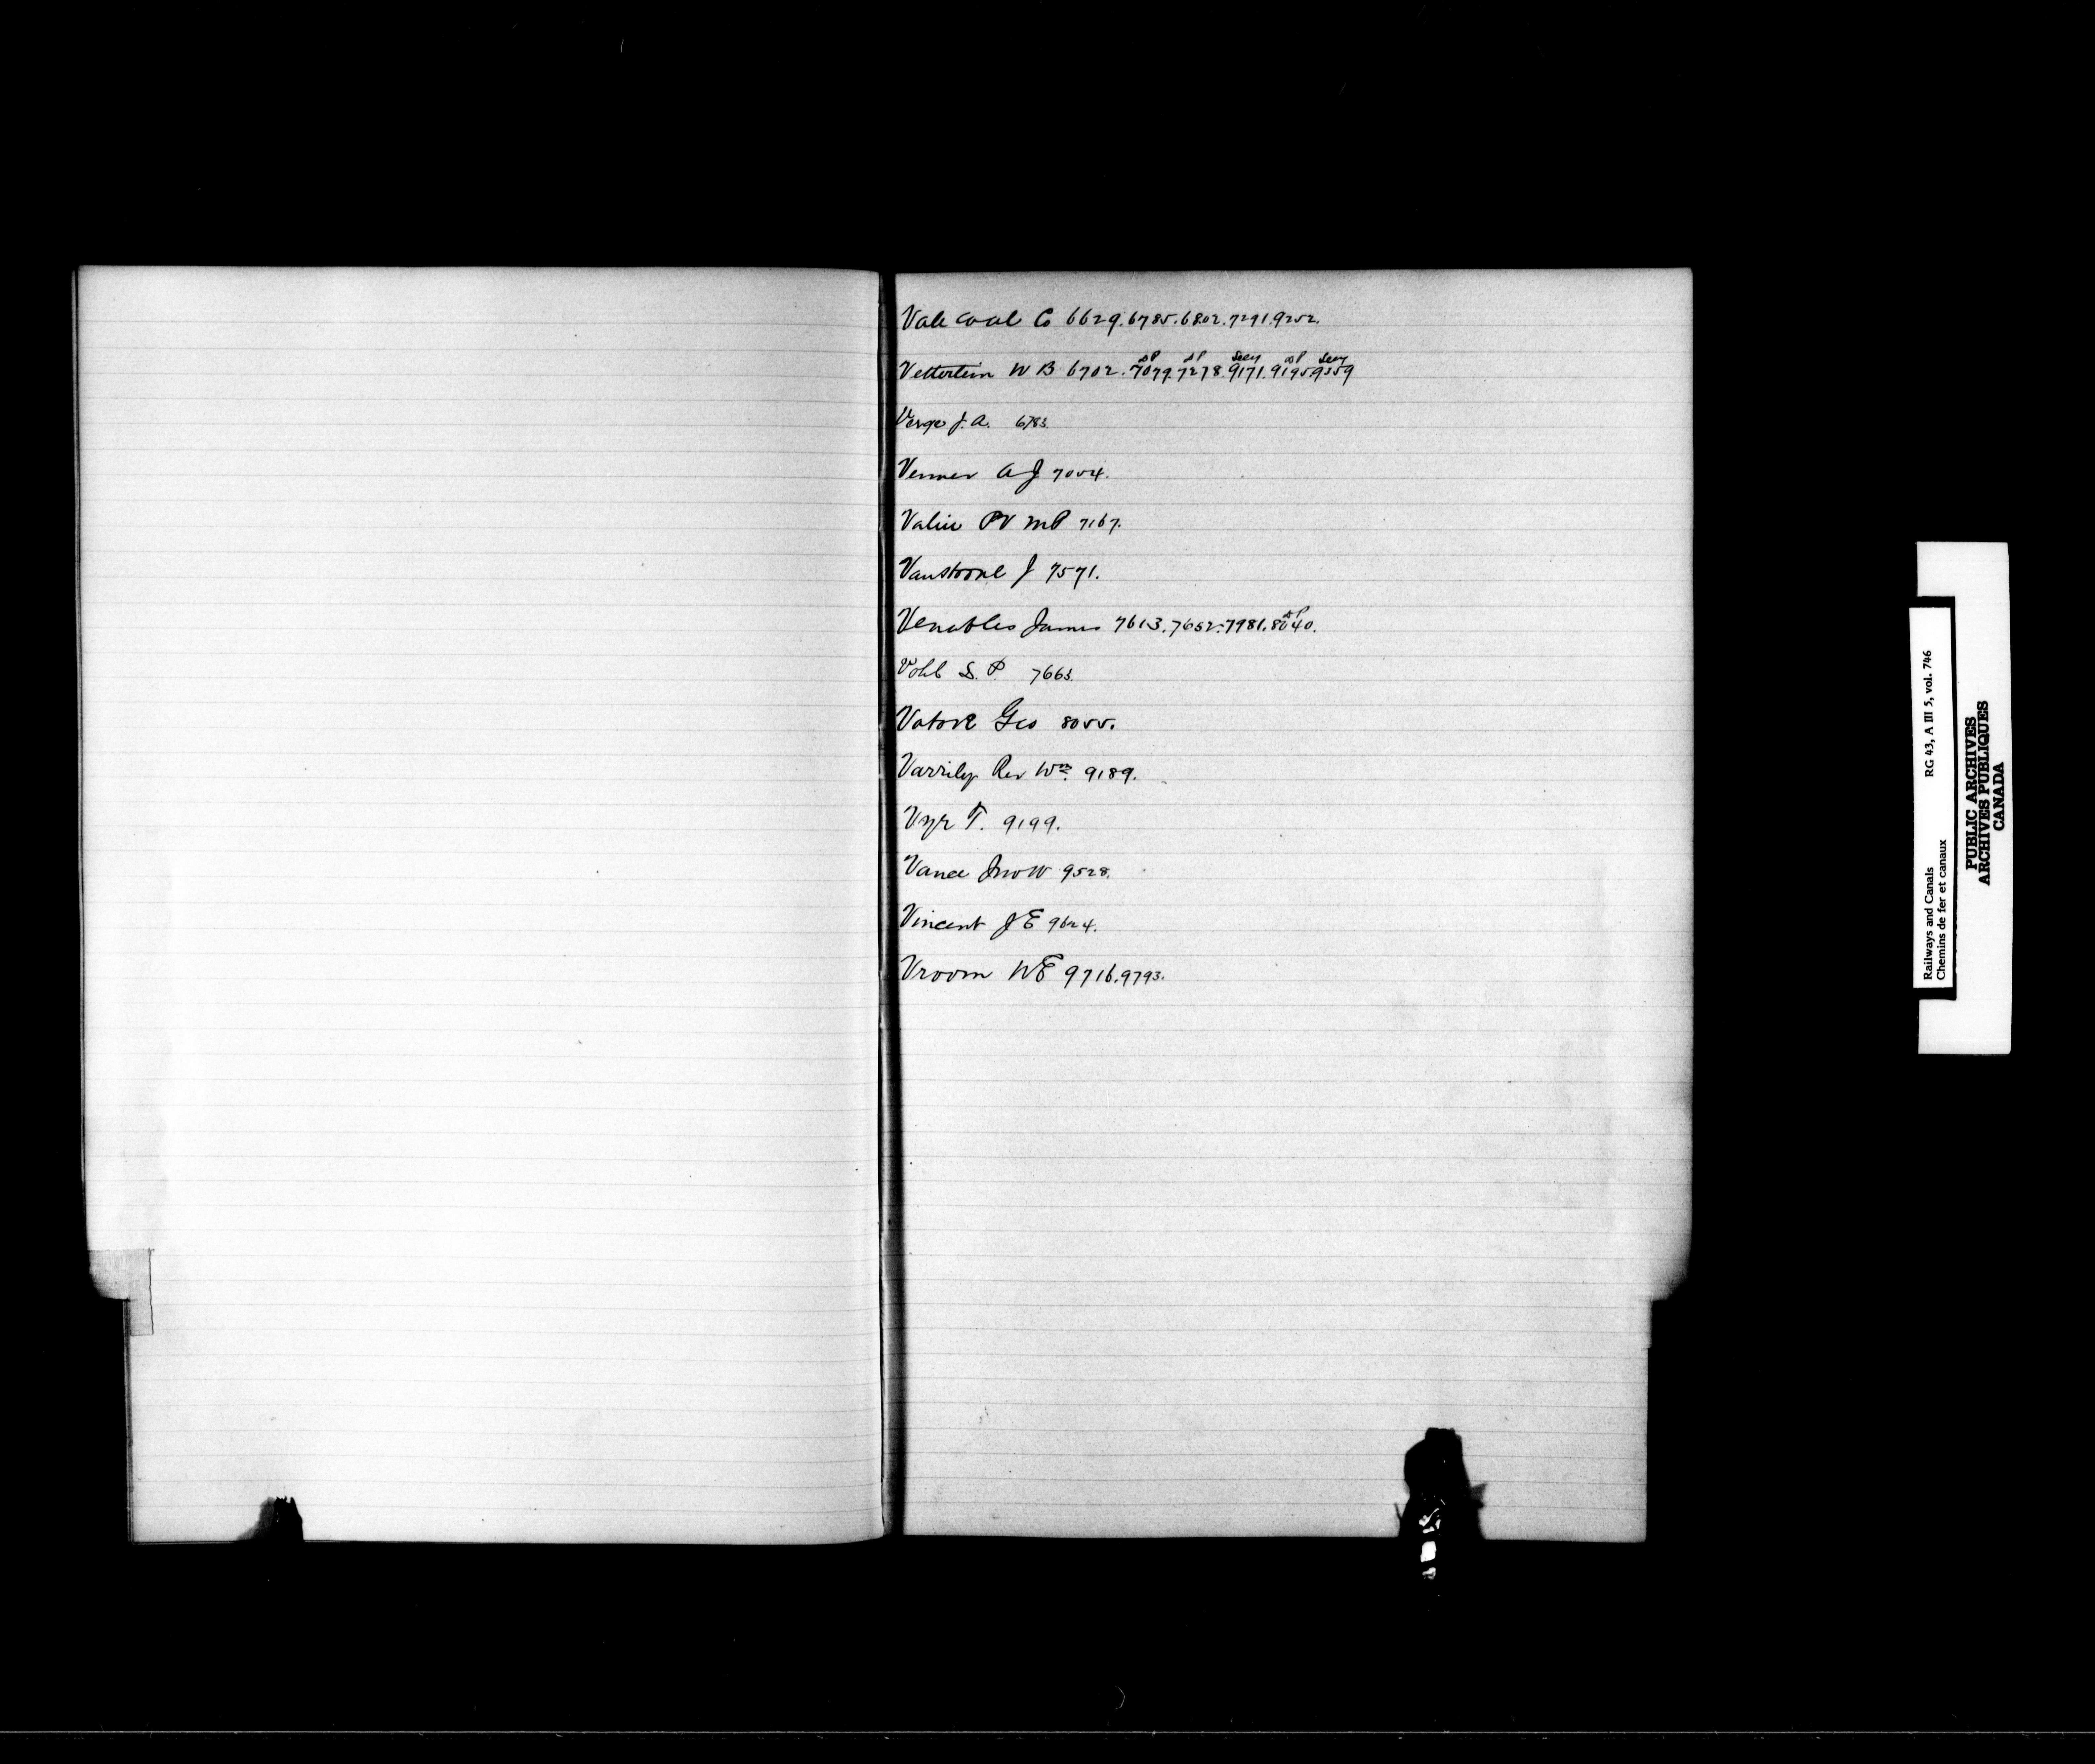 Vale Coal Co 6629.6785.6802.7291.9252.
Vetterlein W B 6702. 7079. 7278. 9171. 9195. 9359
Verge J. A. 6783.
Venner A J 7054.
Valin PV MP 7167.
Vanstone J 7571.
Venables James 7613. 7652. 7981. 8040.
Vohl S. P. 7663.
Vatove Geo 8055.
Varrily Rev Wm. 9189.
Vyr T. 9199.
Vance Jno W 9528.
Vincent J E 9624.
Vroom W E 9716.9793.
Railways and Canals RG 43, A III 5, vol. 746
Chemins de fer et canaux
PUBLIC ARCHIVES
ARCHIVES PUBLIQUES
CANADA